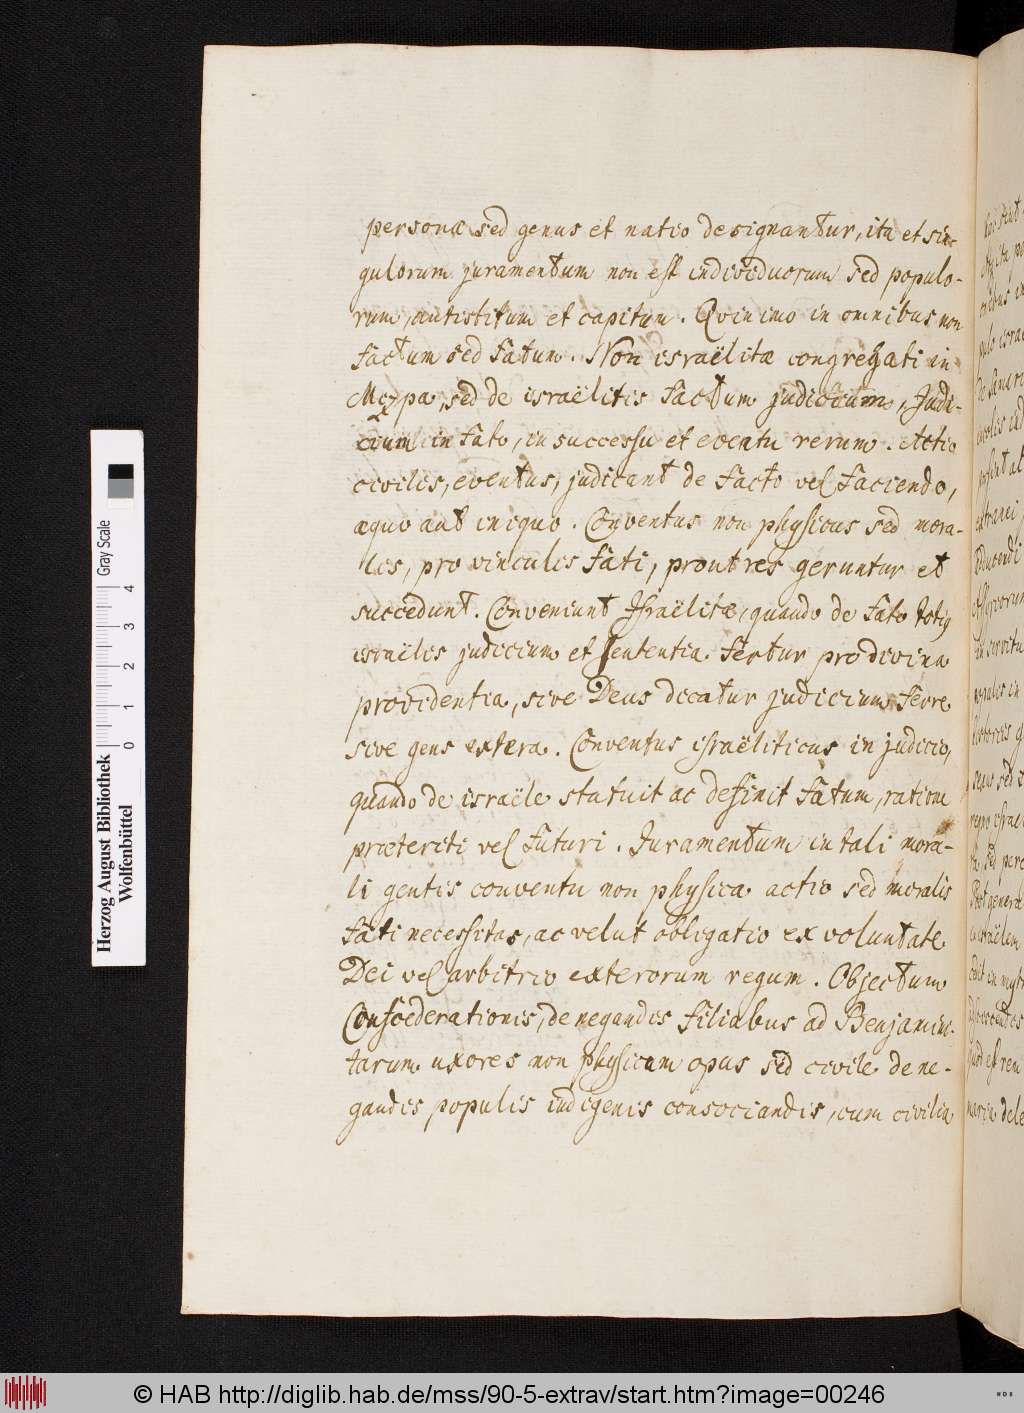 personæ sed genus et natio designantur, ita et sin-
gulorum juramentum non est individuorum sed populo-
rum, antistitum et capitum. Quinimo in omnibus non
factum sed fatum. Non israëlitæ congregati in
Mizpa, sed de israëlitis factum judicium, Judi-
cium in fato, in successu et eventu rerum. Actio
civilis, eventus, judicant de facto vel faciendo,
æquo aut iniquo. Conventus non physicus sed mora-
lis, pro vinculis fati, prout res geruntur et
succedunt. Conveniunt Israëlitæ, quando de fato totius
israëlis judicium et sententia. Fertur pro divina
providentia, sive Deus dicatur judicium ferre
sive gens extera. Conventus israëliticus in judicio,
quando de israële statuit ac definit fatum, ratione
præteriti vel futuri. Juramentum in tali mora-
li gentis conventu non physica actio sed moralis
fati necessitas, ac velut obligatio ex voluntate
Dei vel arbitrio exterorum regum. Objectum
Confoederationis, de negandis filiabus ad Benjamini-
tarum uxores non physicum opus sed civile de ne-
gandis populis indigenis consociandis, cum civilia
Herzog August Bibliothek
Wolfenbüttel
Gray Scale
0 1 2 3 4
© HAB http://diglib.hab.de/mss/90-5-extrav/start.htm?image=00246